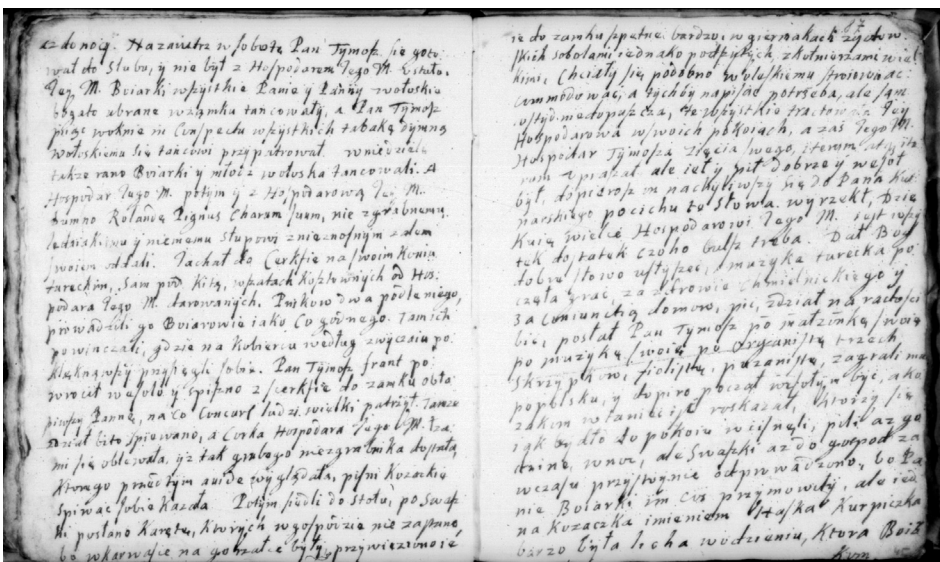 az do nocy. Nazaiutrz w sobotę Pan Tymosz się goto
wał do Slubu, y nie był z Hospodarem Jego M. u stołu.
Jey M. Boiarki wszystkie Panie y Panny wołoskie
bogato ubrane w zamku tancowały, a Pan Tymosz
w oknie in Conspectu wszystkich tabakę dymną
wołoskiemu się tańcowi przypatrował. w niedzielę
także rano Boiarki y młodz wołoska tancowali. A
Hospodar Jego M. potym y z Hospodarową Jey M.
Rolandę Pignus Charum suum, nie zgrabnemu
y niememu słupowi z nieznosnym zalem
swoim oddali. Jachał do Cerkfie na swoim Koniu
tureckim, sam pod Kitą, w szatach Kosztownych od Hos:
podara Jego M. darowanych. dwa podle niego,
prowadzili go Boiarowie iako Co godnego. Tam ich
powinczali, gdzie na Kobiercu według zwyczaiu po:
klęknąwszy przysięgli sobie. Pan Tymosz front po:
wrocił wesoło y spieszno z Cerkfie do zamku obło
piwszy Pannę, na Co ludzi wielki patrzył. Tamze
zdział bito spiewano, a Corka Hospodara Jego M. łza
mi się oblewała, yz tak grubego niezgrabnika dostała,
Ktorego przed tym wyglądała, piesni Kozackie
spiwac sobie Kazała. Potym siedli do Stołu, po Swasz
ki posłano Karetę, Ktorych w gospodzie nie zastano,
bo w karwasie na gorzałce były, przywieziono ie
17
ie do zamku szpetne bardzo, w giermakach zydow
skich sobolami iednako podszytych, z kołnierzami wiel
kimi, Chciały się podobno wołoskiemu stroiowi ac:
commodować, a tychby napisac potrzeba, ale sam
wstyd nie dopuszcza, te wszystkie tractowała Jey M.
Hospodarowa w swoich pokoiach, a zas Jego M.
Hospodar Tymosza Zięcia swego, iterum atque ite
rum upraszał ale iedł y pił dobrze y wesoł
był, dopiero nachyliwszy się do Pana Kut
narskiego pocichu te słowa wyrzekł, Dzię
kuię wielce Hospodarowi Jego M. iest wszy
tek dostatek czoho treba. Dał Bog
dobre słowo usłyszeć, muzyka turecka po
częła grac, za zdrowie Chmielnickiego y
za Coniunctią domow, pic, zdział na radosci
bic, posłał Pan Tymosz po małzinkę swoię
po muzykę swoię po organistę trzech
Skrzypkow, fiolistę, puzanistę, zagrali mu
po polsku, y dopiro począł wesołym być, a ko
zakom w taniec isc roskazał, Ktorzy się
iak bydło do pokoiu wcisnęli, pili az go
dzinę w noc, ale Swaszki az do gospod za
wczasu przystoynie odprowadzono, bo Pa
nie Boiarki im cos przymowiły, ale ied
na Kozaczka imieniem Haska Kurpiczka
barzo była licha w odzieniu, Ktora Boia